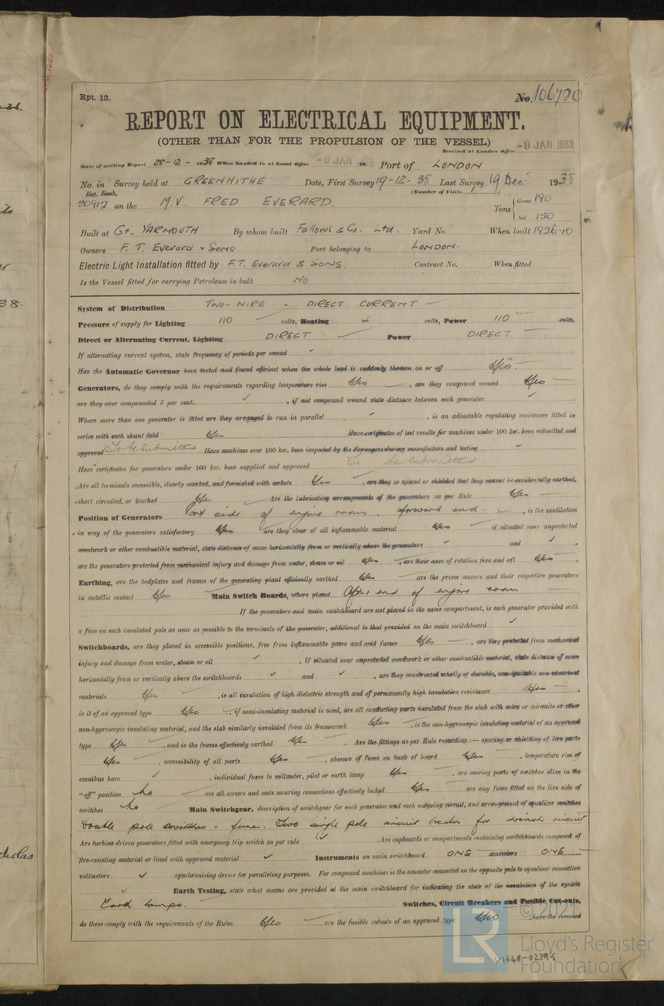 Rpt. 13.
No. 106790
REPORT ON ELECTRICAL EQUIPMENT.
(OTHER THAN FOR THE PROPULSION OF THE VESSEL)
Received at London Office -9 JAN 1939
Date of writing Report 28-12-1938 When handed in at Local Office -9 JAN 19 Port of LONDON
No. in Survey held at GREENHITHE Date, First Survey 19-12-38 Last Survey 19 Dec 1938
Reg. Book. (Number of Visits
on the M.V. FRED EVERARD. Tons Gross 190 Net 150
Built at Gt. YARMOUTH By whom built Fellows & Co. Ltd. Yard No. When built 1926-10
Owners F. T. Everard & Sons Port belonging to LONDON.
Electric Light Installation fitted by F.T. Everard & Sons. Contract No. When fitted
Is the Vessel fitted for carrying Petroleum in bulk NO
System of Distribution TWO-WIRE - DIRECT CURRENT
Pressure of supply for Lighting 110 volts, Heating volts, Power 110 volts.
Direct or Alternating Current, Lighting DIRECT Power DIRECT
If alternating current system, state frequency of periods per second
Has the Automatic Governor been tested and found efficient when the whole load is suddenly thrown on or off Yes
Generators, do they comply with the requirements regarding temperature rise Yes, are they compound wound Yes
are they over compounded 5 per cent. , if not compound wound state distance between each generator
Where more than one generator is fitted are they arranged to run in parallel , is an adjustable regulating resistance fitted in
series with each shunt field Yes Have certificates of test results for machines under 100 kw. been submitted and
approved To be Submitted Have machines over 100 kw. been inspected by the Surveyors during manufacture and testing
Have certificates for generators under 100 kw. been supplied and approved To be submitted
Are all terminals accessible, clearly marked, and furnished with sockets Yes, are they so spaced or shielded that they cannot be accidentally earthed,
short circuited, or touched Yes Are the lubricating arrangements of the generators as per Rule Yes
Position of Generators Port side of engine room forward end. , is the ventilation
in way of the generators satisfactory Yes are they clear of all inflammable material Yes if situated near unprotected
woodwork or other combustible material, state distance of same horizontally from or vertically above the generators and
are the generators protected from mechanical injury and damage from water, steam or oil Yes, are their axes of rotation fore and aft Yes
Earthing, are the bedplates and frames of the generating plant efficiently earthed Yes are the prime movers and their respective generators
in metallic contact Yes Main Switch Boards, where placed After end of engine room
If the generators and main switchboard are not placed in the same compartment, is each generator provided with
a fuse on each insulated pole as near as possible to the terminals of the generator, additional to that provided on the main switchboard
Switchboards, are they placed in accessible positions, free from inflammable gases and acid fumes Yes, are they protected from mechanical
injury and damage from water, steam or oil , if situated near unprotected woodwork or other combustible material, state distance of same
horizontally from or vertically above the switchboards and , are they constructed wholly of durable, non-ignitable non-absorbent
materials Yes, is all insulation of high dielectric strength and of permanently high insulation resistance Yes
is it of an approved type Yes, if semi-insulating material is used, are all conducting parts insulated from the slab with mica or micanite or other
non-hygroscopic insulating material, and the slab similarly insulated from its framework Yes, is the non-hygroscopic insulating material of an approved
type Yes, and is the frame effectively earthed Yes. Are the fittings as per Rule regarding:— spacing or shielding of live parts
Yes, accessibility of all parts Yes, absence of fuses on back of board Yes, temperature rise of
omnibus bars , individual fuses to voltmeter, pilot or earth lamp Yes, are moving parts of switches alive in the
"off" position No are all screws and nuts securing connections effectively locked Yes are any fuses fitted on the live side of
switches No Main Switchgear, description of switchgear for each generator and each outgoing circuit, and arrangement of equalizer switches
Double pole switches & fuses. Two single pole circuit breaker for winch circuit
Are turbine driven generators fitted with emergency trip switch as per rule Are cupboards or compartments containing switchboards composed of
fire-resisting material or lined with approved material Instruments on main switchboard ONE ammeters ONE
voltmeters synchronising device for paralleling purposes. For compound machines is the ammeter connected on the opposite pole to equaliser connection
Earth Testing, state what means are provided at the main switchboard for indicating the state of the insulation of the system
Earth lamps. Switches, Circuit Breakers and Fusible Cut-outs,
do these comply with the requirements of the Rules Yes are the fusible cutouts of an approved type Yes have the reversed
LR
Lloyd's Register
Foundation